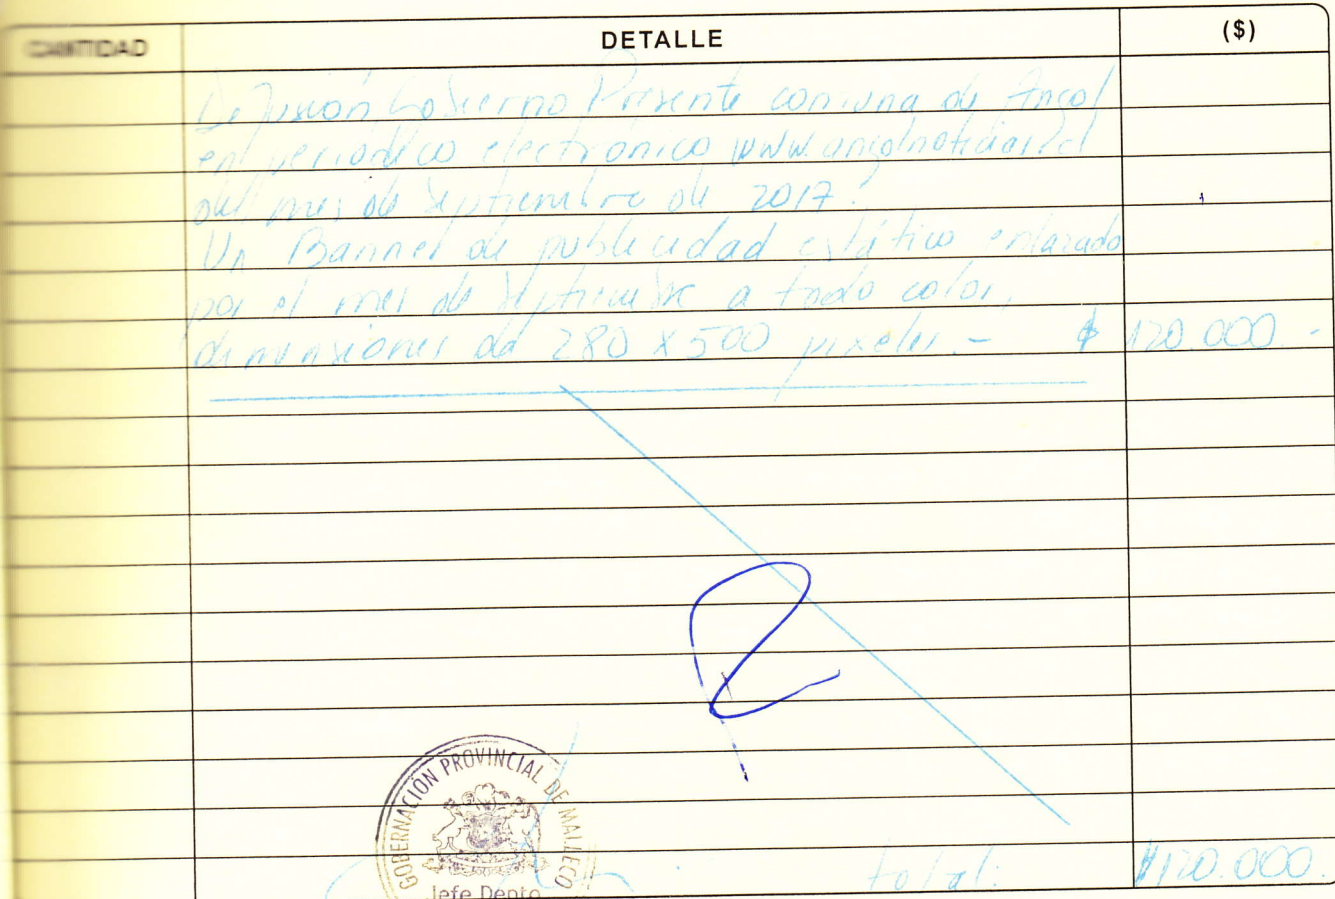 CANTIDAD DETALLE ($)
Difusión Gobierno Presente comuna de Angol
en periódico electrónico www.angolnoticias.cl
del mes de Septiembre de 2017.
Un Banner de publicidad estático enlazado
por el mes de Septiembre a todo color,
dimensiones de 280 x 500 pixeles.- $ 120.000.-
GOBERNACIÓN PROVINCIAL DE MALLECO
Jefe Depto
total: $120.000.